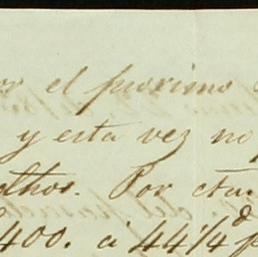 el proximo
y esta vez no
Por cta.
400. a 44 1/4 d